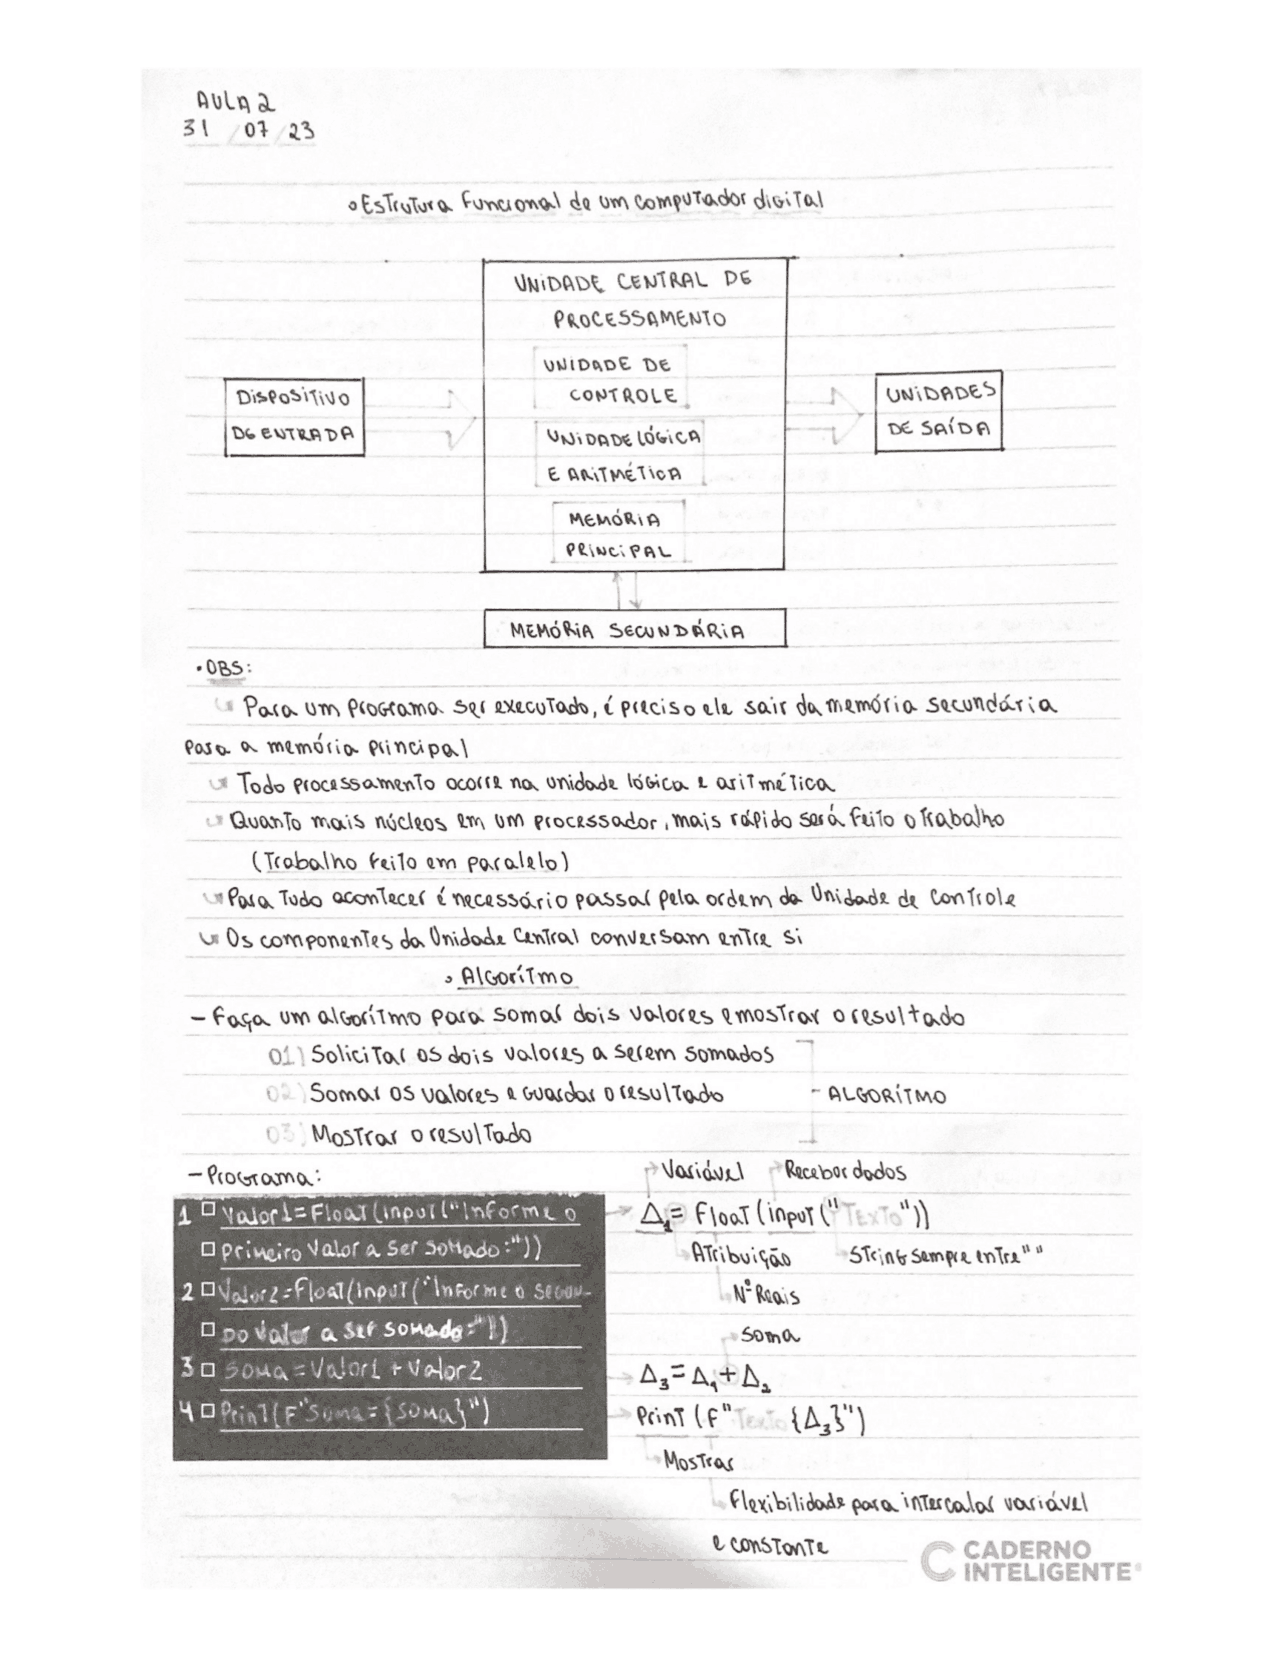 AULA 2
31 / 07 / 23
Estrutura Funcional de um computador digital
UNIDADE CENTRAL DE
PROCESSAMENTO
UNIDADE DE
CONTROLE
DISPOSITIVO
DE ENTRADA
UNIDADES
DE SAÍDA
UNIDADE LÓGICA
E ARITMÉTICA
MEMÓRIA
PRINCIPAL
MEMÓRIA SECUNDÁRIA
• OBS:
↳ Para um programa ser executado, é preciso ele sair da memória secundária
para a memória principal
↳ Todo processamento ocorre na unidade lógica e aritmética
↳ Quanto mais núcleos em um processador, mais rápido será feito o trabalho
(Trabalho feito em paralelo)
↳ Para tudo acontecer é necessário passar pela ordem da Unidade de Controle
↳ Os componentes da Unidade Central conversam entre si
Algorítmo
- Faça um algorítmo para somar dois valores e mostrar o resultado
01) Solicitar os dois valores a serem somados
02) Somar os valores e guardar o resultado - ALGORÍTMO
03) Mostrar o resultado
- Programa:
Variável Receber dados
1 Valor1=Float(input("Informe o
primeiro valor a ser somado:"))
2 Valor2=Float(input("Informe o segun-
do valor a ser somado:"))
3 Soma=Valor1 + Valor2
4 Print(F"Soma={soma}")
Δ₁= Float (input ("TEXTO"))
Atribuição String sempre entre ""
Nº Reais
Soma
Δ₃=Δ₁+Δ₂
Print (f"Texto {Δ₃}")
Mostrar
Flexibilidade para intercalar variável
e constante
CADERNO
INTELIGENTE®